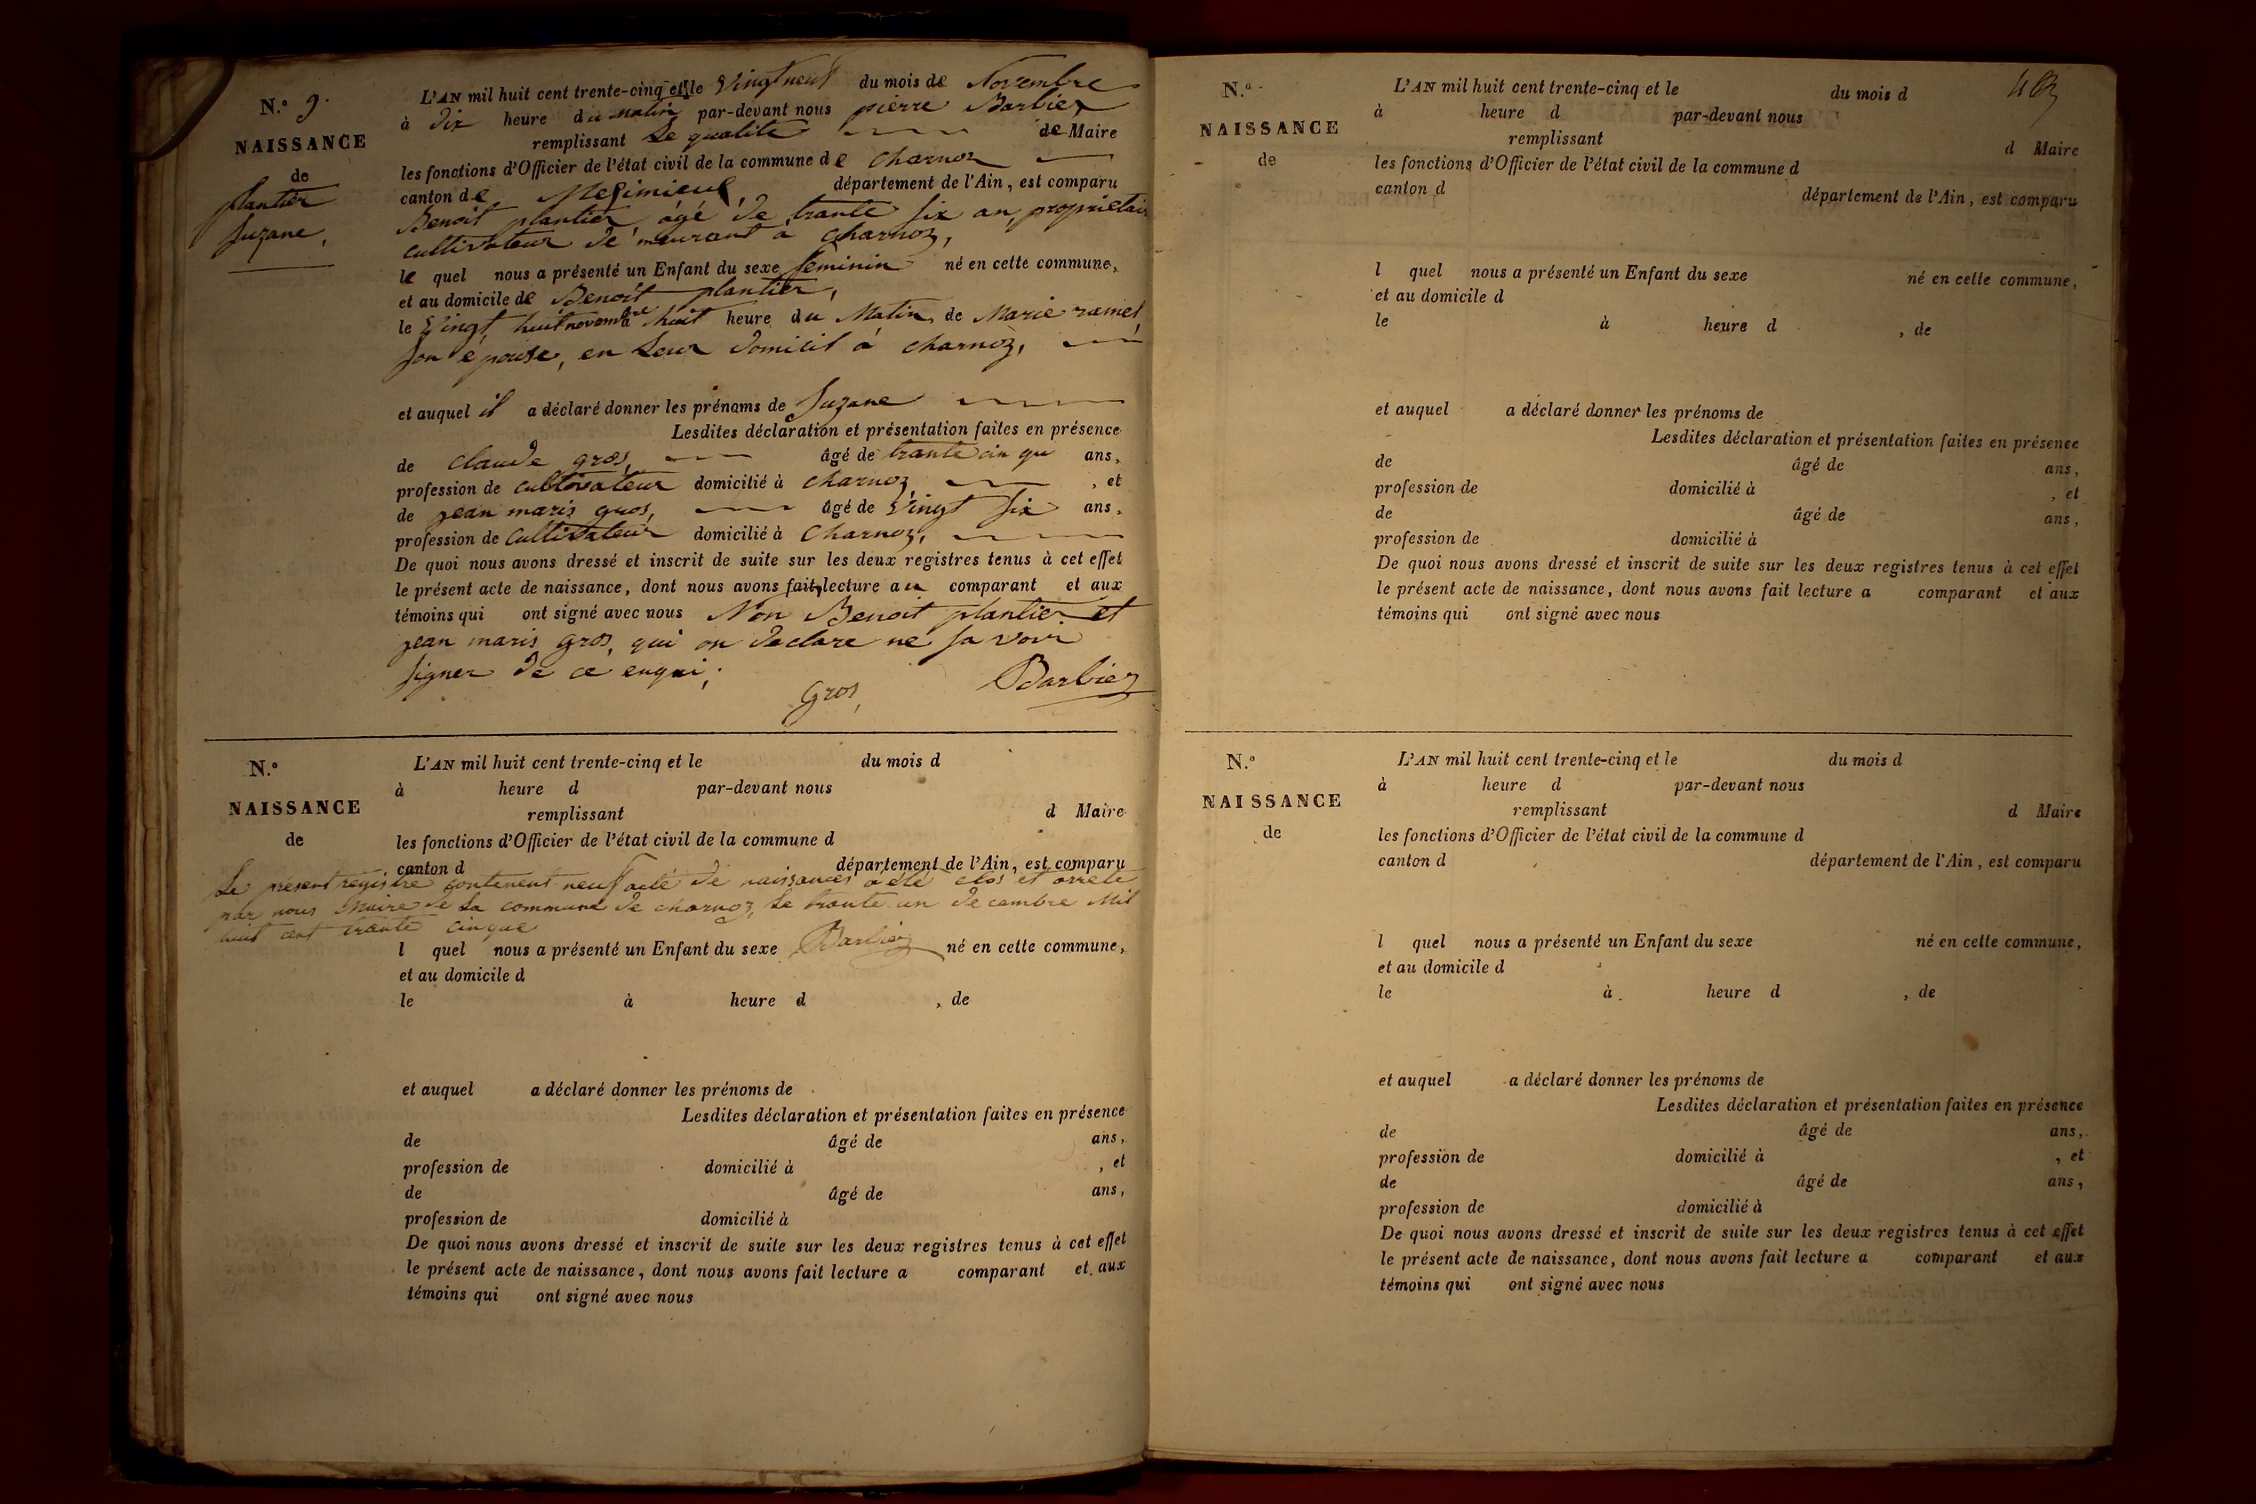 N.o 9.
NAISSANCE
de
plantier
Suzane,
L'AN mil huit cent trente-cinq et le Vingt neuf du mois de Novembre
à dix heure du matin par-devant nous pierre Barbier
remplissant Le qualite de Maire
les fonctions d'Officier de l'état civil de la commune de Charnoz
canton de Meximieux, département de l'Ain, est comparu
Benoit plantier, âgé de trante six an, proprietair
cultivateur de meurant a Charnoz,
le quel nous a présenté un Enfant du sexe feminin né en cette commune,
et au domicile de Benoit plantier,
le Vingt huit novembre à huit heure du Matin, de Marie ramel
son épouse, en Leur domicil a charnoz,
et auquel il a déclaré donner les prénoms de Suzane
Lesdites déclaration et présentation faites en présence
de claude gros, âgé de trante cin qu ans,
profession de cultivateur domicilié à Charnoz, et
de jean maris gros, âgé de Vingt six ans,
profession de Cultivateur domicilié à Charnoz,
De quoi nous avons dressé et inscrit de suite sur les deux registres tenus à cet effet
le présent acte de naissance, dont nous avons fait lecture au comparant et aux
témoins qui ont signé avec nous Non Benoit plantier et
jean maris gros, qui on declare ne sa voir
signer de ce enqui;
Gros, Barbier
N.o
NAISSANCE
de
L'AN mil huit cent trente-cinq et le du mois d
à heure d par-devant nous
remplissant d Maire
les fonctions d'Officier de l'état civil de la commune d
canton d département de l'Ain, est comparu
Le présent registre contenent neuf acte de naissances a été clos et arrete
par nous Maire de La commune de charnoz, Le trante un decembre Mil
huit cent trante cinque
l quel nous a présenté un Enfant du sexe Barbier né en cette commune,
et au domicile d
le à heure d , de
et auquel a déclaré donner les prénoms de
Lesdites déclaration et présentation faites en présence
de âgé de ans,
profession de domicilié à , et
de âgé de ans,
profession de domicilié à
De quoi nous avons dressé et inscrit de suite sur les deux registres tenus à cet effet
le présent acte de naissance, dont nous avons fait lecture a comparant et aux
témoins qui ont signé avec nous
N.o
NAISSANCE
de
L'AN mil huit cent trente-cinq et le du mois d
à heure d par-devant nous
remplissant d Maire
les fonctions d'Officier de l'état civil de la commune d
canton d département de l'Ain, est comparu
l quel nous a présenté un Enfant du sexe né en cette commune,
et au domicile d
le à heure d , de
et auquel a déclaré donner les prénoms de
Lesdites déclaration et présentation faites en présence
de âgé de ans,
profession de domicilié à , et
de âgé de ans,
profession de domicilié à
De quoi nous avons dressé et inscrit de suite sur les deux registres tenus à cet effet
le présent acte de naissance, dont nous avons fait lecture a comparant et aux
témoins qui ont signé avec nous
N.o
NAISSANCE
de
L'AN mil huit cent trente-cinq et le du mois d
à heure d par-devant nous
remplissant d Maire
les fonctions d'Officier de l'état civil de la commune d
canton d département de l'Ain, est comparu
l quel nous a présenté un Enfant du sexe né en cette commune,
et au domicile d
le à heure d , de
et auquel a déclaré donner les prénoms de
Lesdites déclaration et présentation faites en présence
de âgé de ans,
profession de domicilié à , et
de âgé de ans,
profession de domicilié à
De quoi nous avons dressé et inscrit de suite sur les deux registres tenus à cet effet
le présent acte de naissance, dont nous avons fait lecture a comparant et aux
témoins qui ont signé avec nous